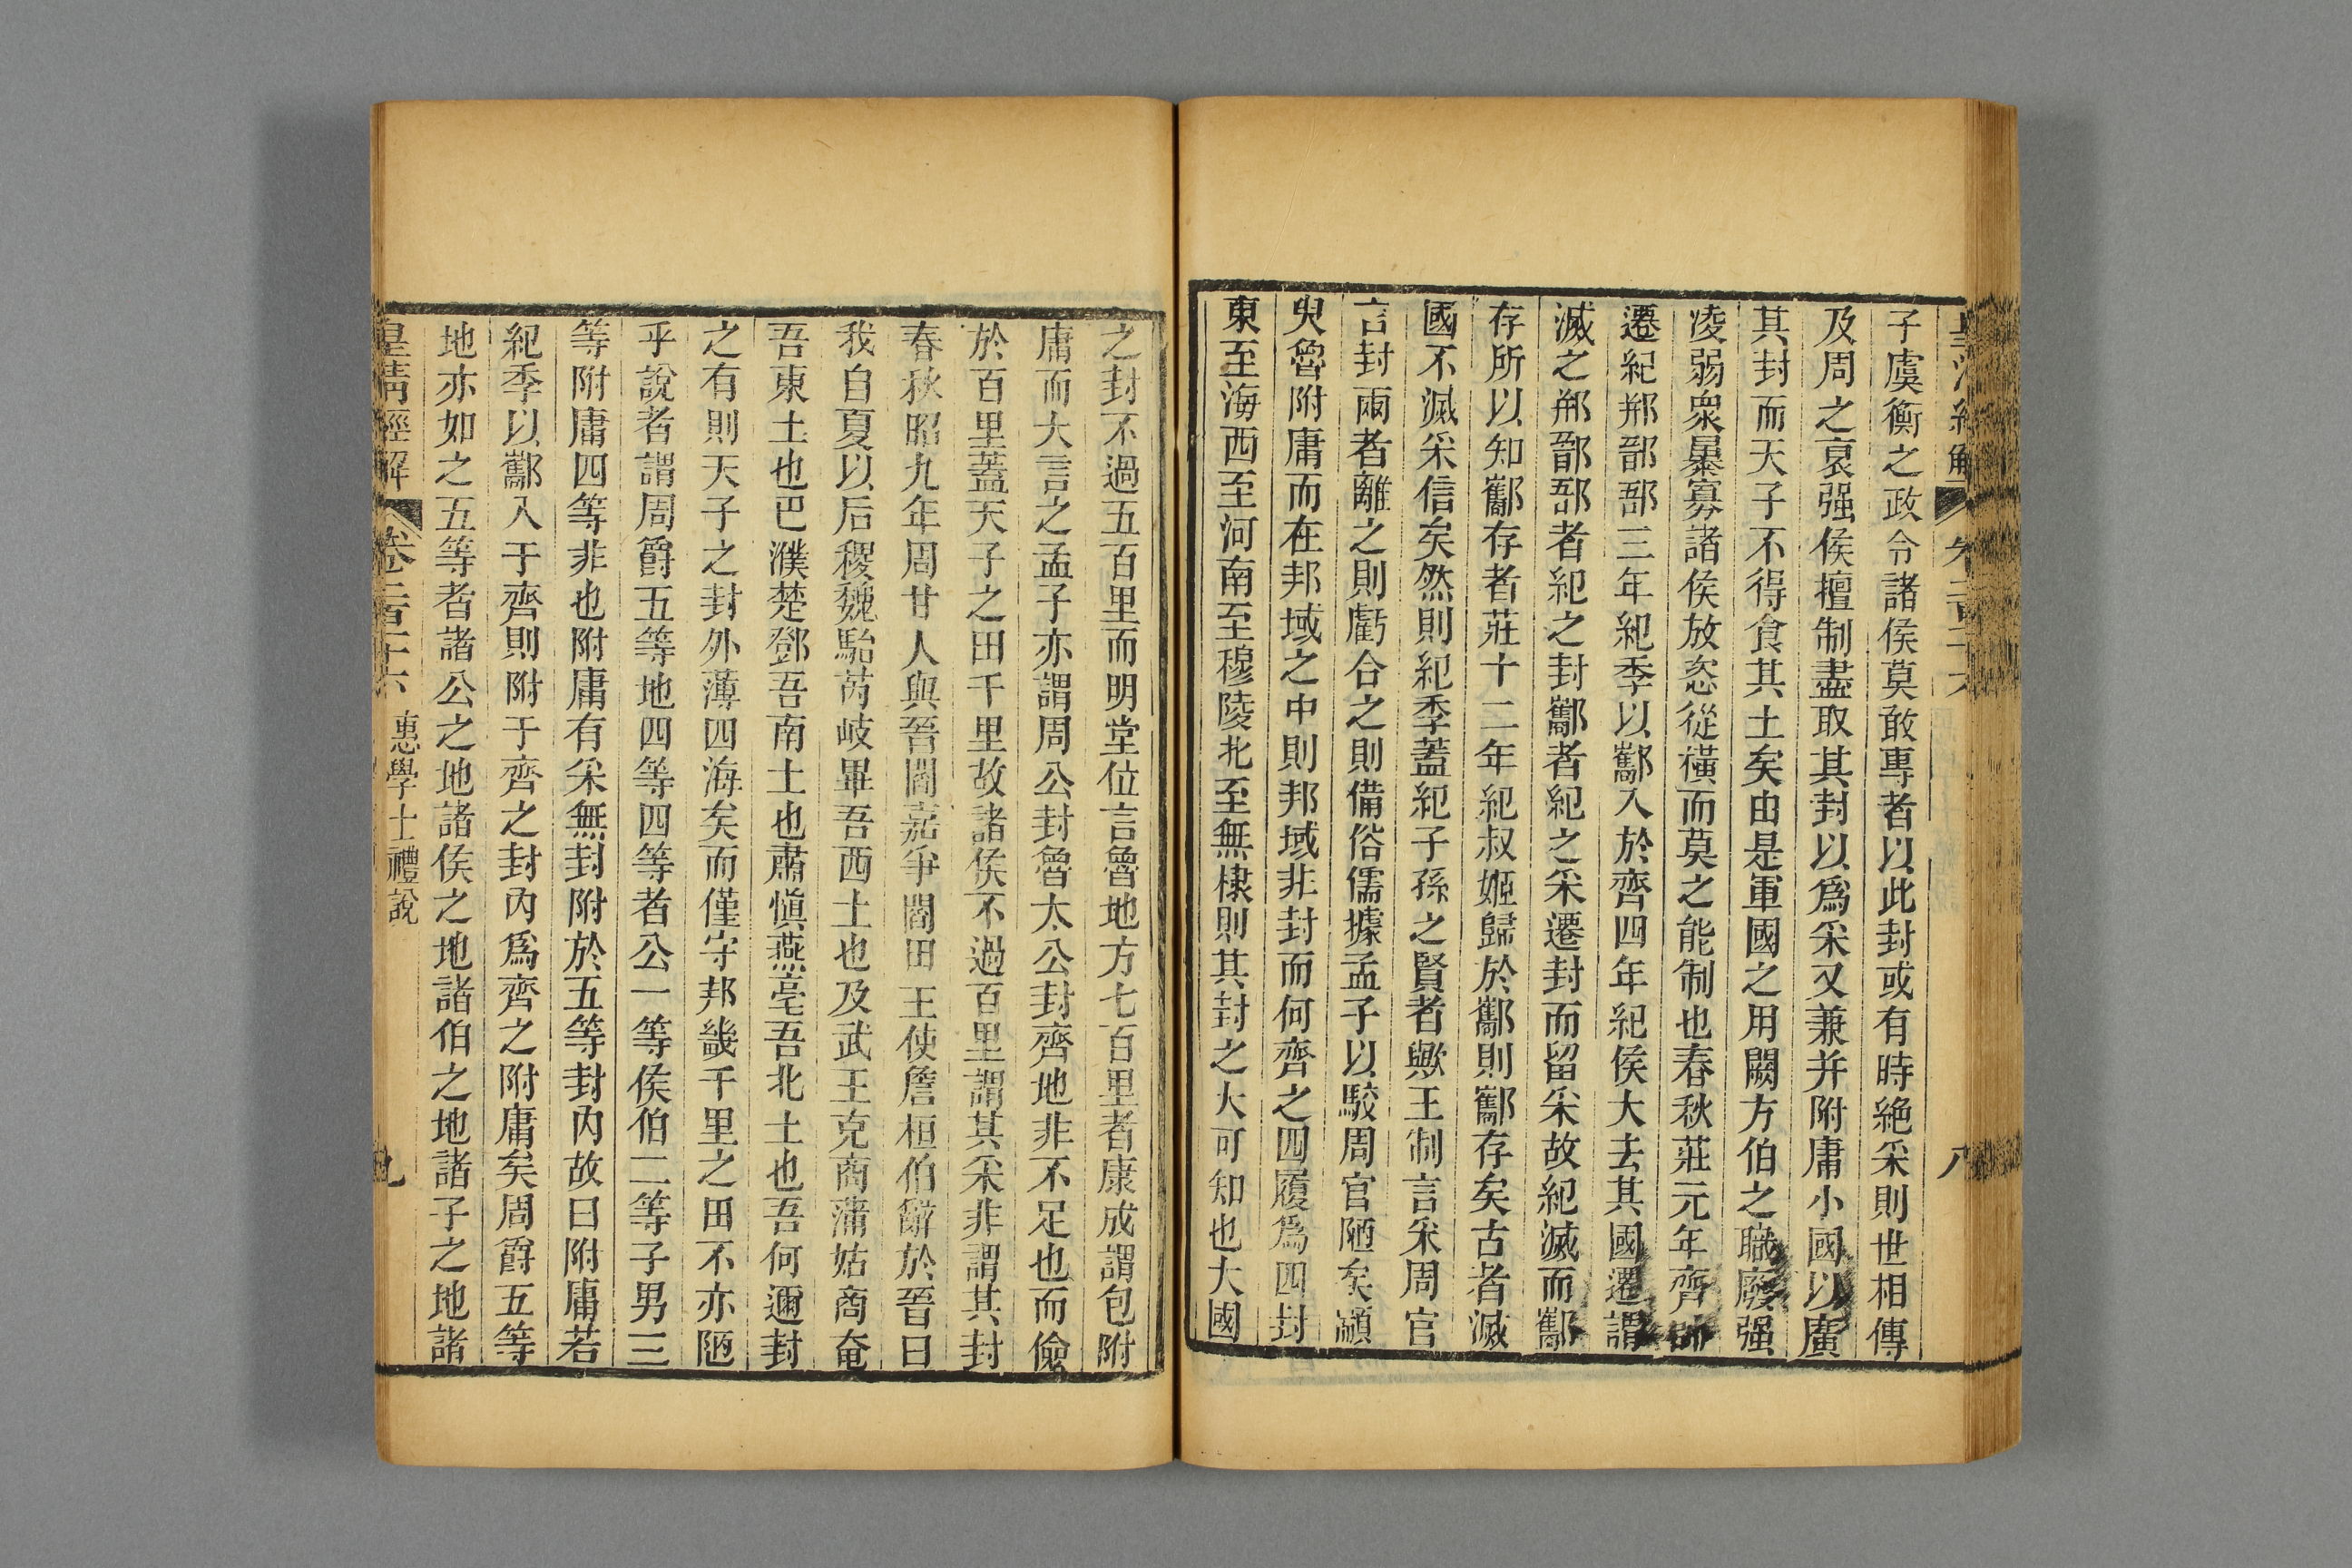 子虞衡之政令諸侯莫敢專者以此封或有時絶采則世相傳
及周之衰强侯擅制盡取其封以爲采又兼并附庸小國以廣
其封而天子不得食其土矣由是軍國之用闕方伯之職廢强
凌弱衆暴寡諸侯放恣從橫而莫之能制也春秋莊元年齊師
遷紀郱鄑郚三年紀季以酅入於齊四年紀侯大去其國遷謂
滅之郱鄑郚者紀之封酅者紀之采遷封而留采故紀滅而酅
存所以知酅存者莊十二年紀叔姬歸於酅則酅存矣古者滅
國不滅采信矣然則紀季蓋紀子孫之賢者歟王制言采周官
言封兩者離之則虧合之則備俗儒據孟子以駮周官陋矣顓
臾魯附庸而在邦域之中則邦域非封而何齊之四履爲四封
東至海西至河南至穆陵北至無棣則其封之大可知也大國
之封不過五百里而明堂位言魯地方七百里者康成謂包附
庸而大言之孟子亦謂周公封魯太公封齊地非不足也而儉
於百里蓋天子之田千里故諸侯不過百里謂其采非謂其封
春秋昭九年周甘人與晉閻嘉爭閻田王使詹桓伯辭於晉曰
我自夏以后稷魏駘芮岐畢吾西土也及武王克商蒲姑商奄
吾東土也巴濮楚鄧吾南土也肅愼燕亳吾北土也吾何邇封
之有則天子之封外薄四海矣而僅守邦畿千里之田不亦陋
乎說者謂周爵五等地四等四等者公一等侯伯二等子男三
等附庸四等非也附庸有采無封附於五等封內故曰附庸若
紀季以酅入于齊則附于齊之封內爲齊之附庸矣周爵五等
地亦如之五等者諸公之地諸侯之地諸伯之地諸子之地諸
皇清經解 卷二百二十六 惠學士禮說 九